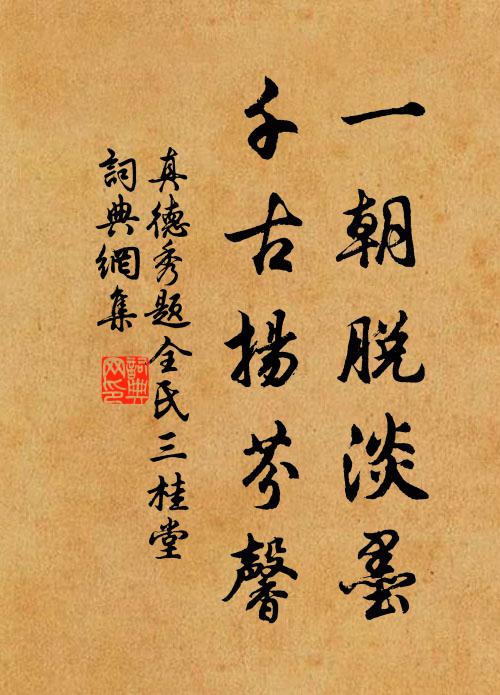 一朝脱淡墨
千古揚芬馨
真德秀题全氏三桂堂
詞典網集
詞典网印